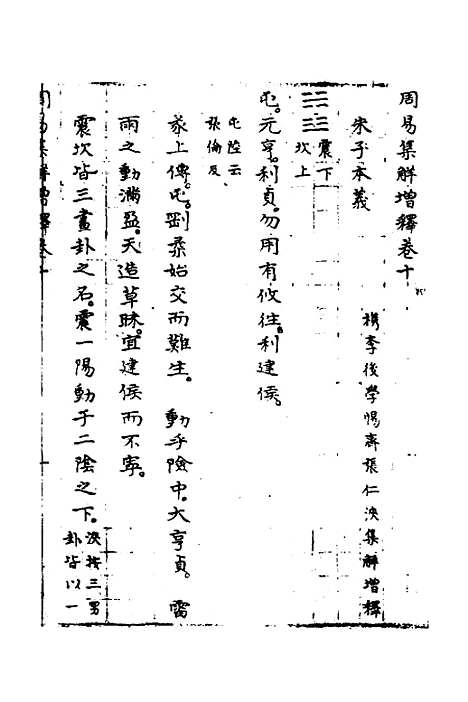 周易集解增釋卷十
朱子本義 檇李後學惕齋張仁浹集解增釋
震下
坎上
屯。元亨。利貞。勿用有攸往。利建侯。
屯陸云
張倫反
彖上傳。屯。剛柔始交而難生。 動乎險中。大亨貞。 雷
雨之動滿盈。天造草昧。宜建侯而不寧。
震坎皆三畫卦之名。震一陽動于二陰之下。浹按三男
卦皆以一
周易集解增釋卷十